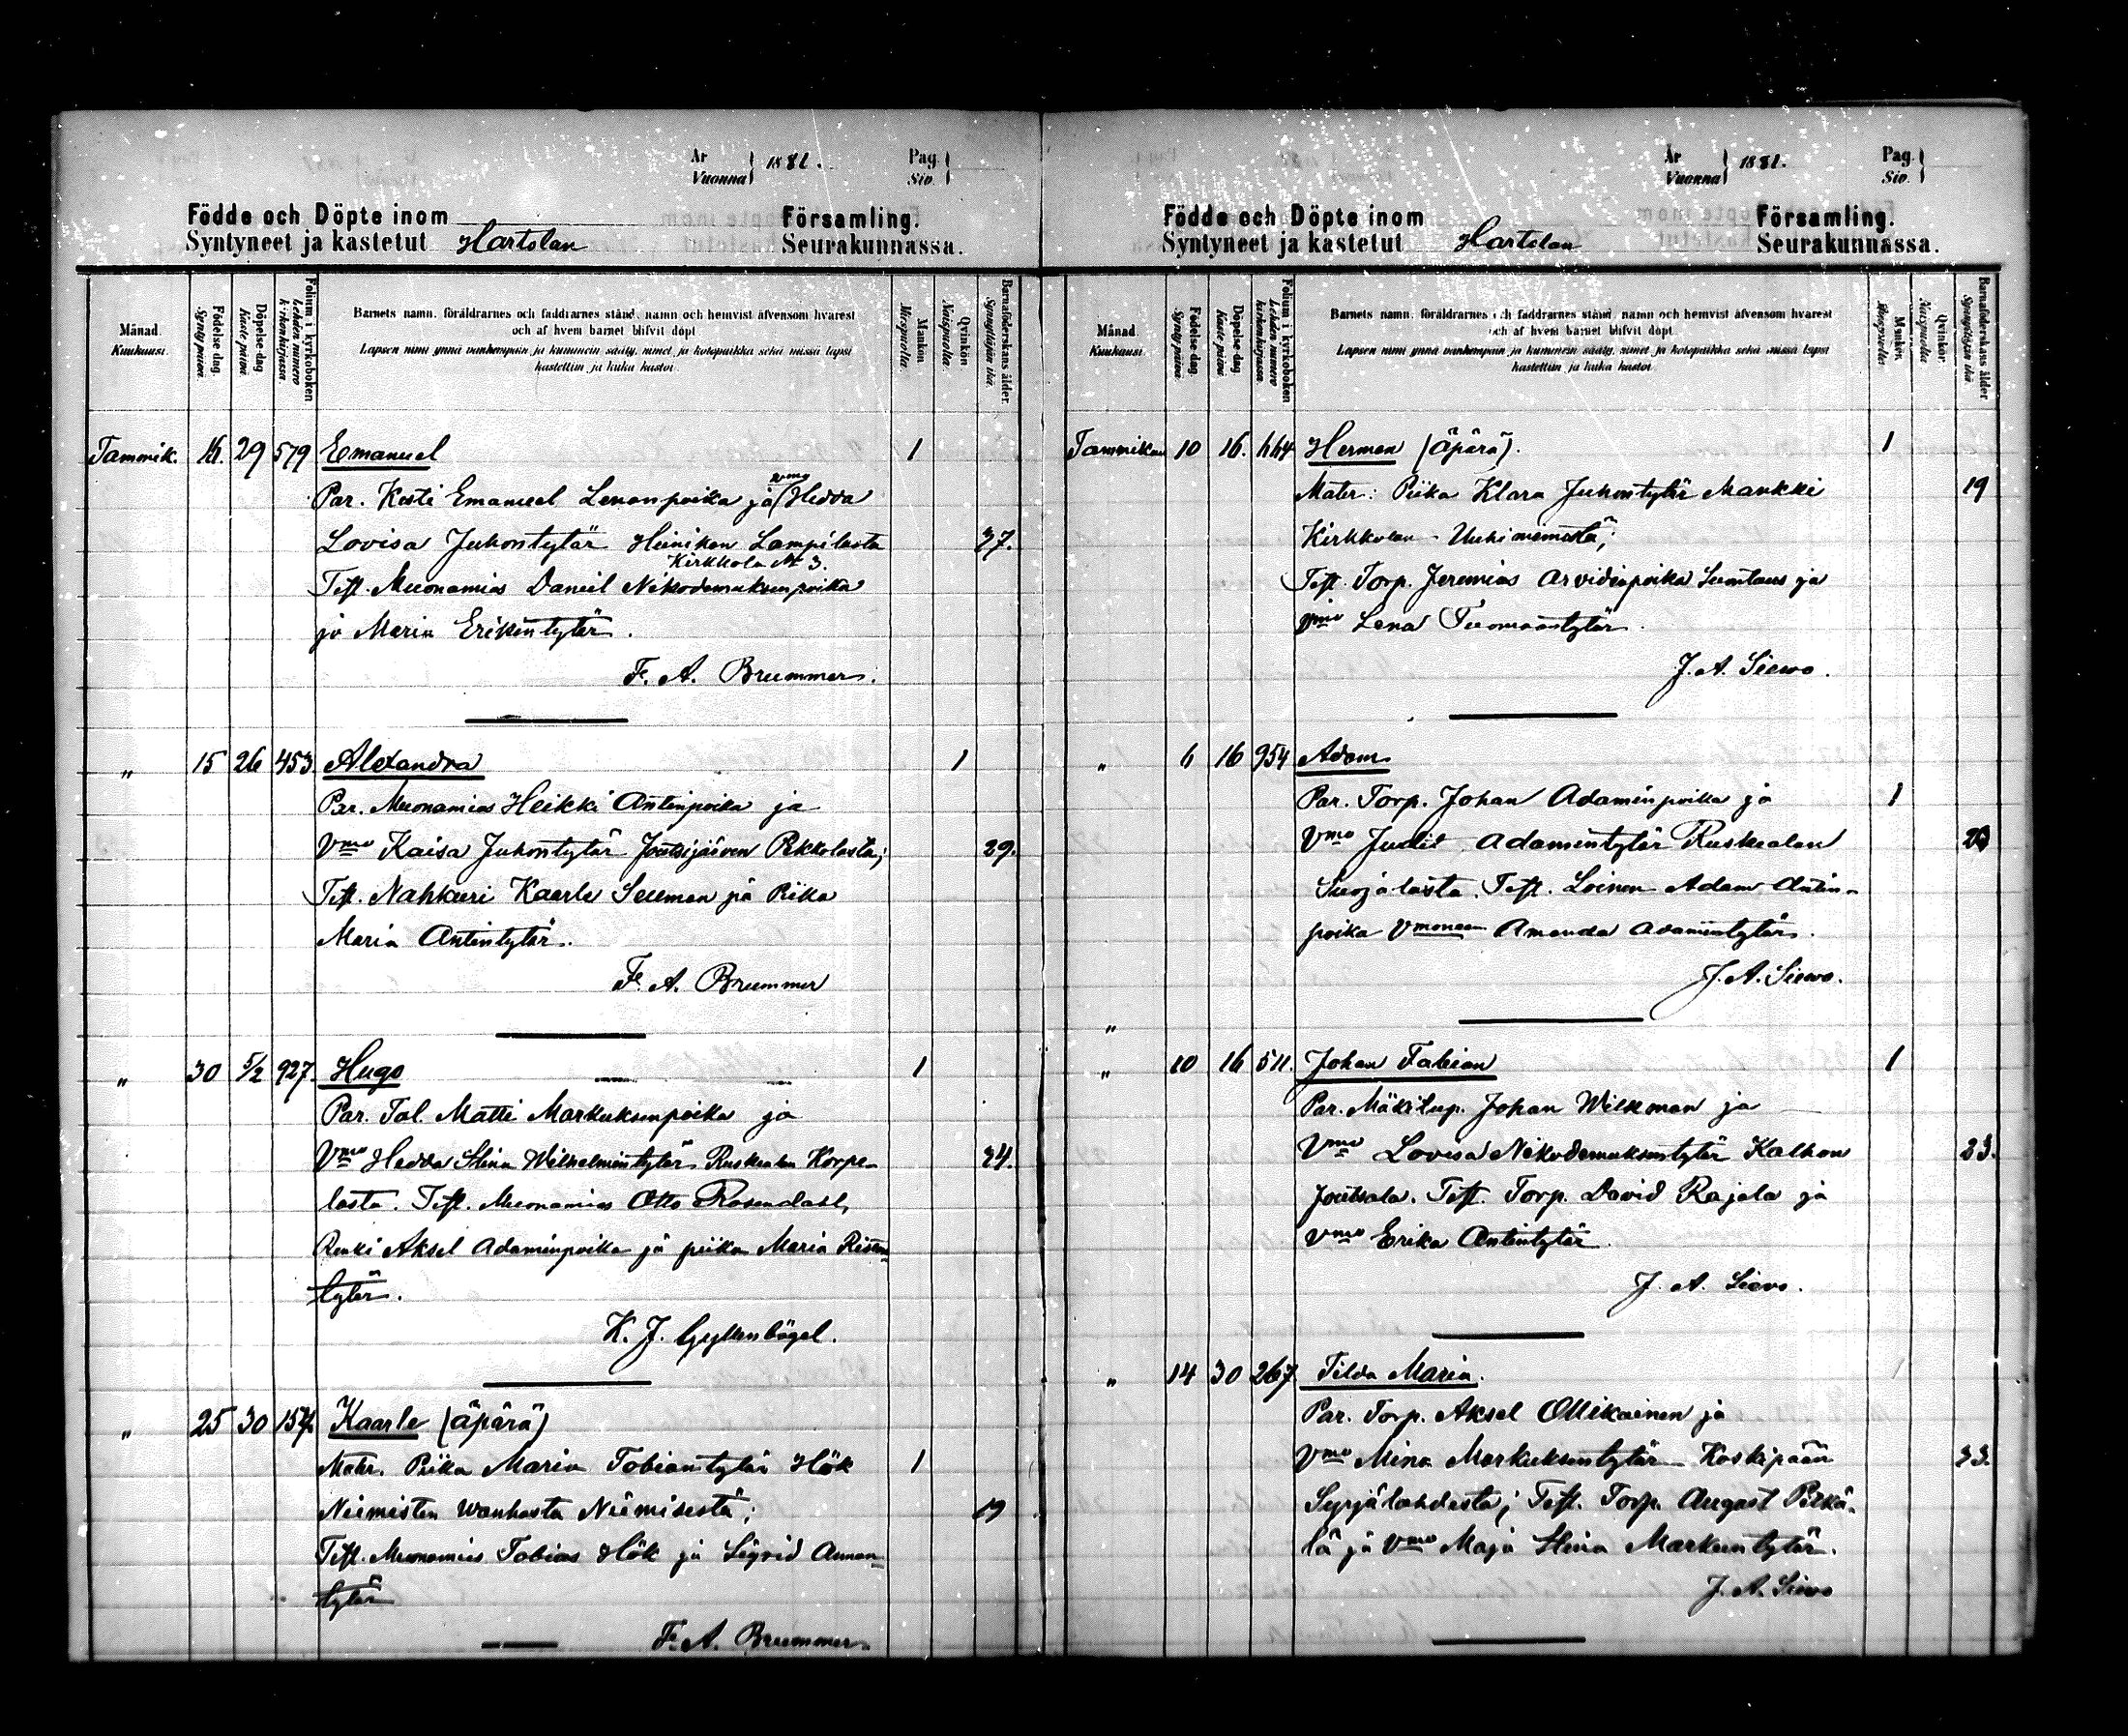 År
Vuonna 1882.
Pag.
Siv.
Födde och Döpte inom
Syntyneet ja kastetut Hartolan
Församling.
Seurakunnassa.
Månad.
Kuukausi.
Födelse dag.
Synty päivä.
Döpelse-dag
Kaste päivä.
Folium i kyrkoboken
Lehden numero kirkonkirjassa.
Barnets namn, föräldrarnes och faddrarnes stånd, namn och hemvist äfvensom hvarest
och af hvem barnet blifvit döpt.
Lapsen nimi ynnä vanhempain ja kummein sääty, nimet ja kotopaikka sekä missä lapsi
kastettiin ja kuka kastoi.
Mankön
Miespuolta.
Qvinkön
Naispuolta.
Barnaföderskans ålder.
Synnyttäjän ikä.
Tammik. 16. 29 579 Emanuel 1
Par. Kosti Emanuel Lenanpoika ja vmo Hedda
Lovisa Juhontytär Heinikan Lampilasta 37.
Kirkkola № 3.
Test. Muonamies Daniel Nikodemuksenpoika
ja Maria Erikintytär.
F. A. Brummer.
" 15 26 453 Alexandra 1
Par. Muonamies Heikki Antinpoika ja
Vmo Kaisa Juhontytär Joutsijärven Pekkolasta; 29.
Test. Nahkuri Kaarle Seeman ja Piika
Maria Antintytär.
F. A. Brummer
" 30 5/2 927. Hugo 1
Par. Tal. Matti Markuksenpoika ja
Vmo Hedda Stina Wilhelmintytär Ruskealan Korpe- 34.
lasta. Test. Muonamies Otto Rosendahl,
Renki Aksel Adaminpoika ja piika Maria
tytär.
K. J. Gyllenbögel.
" 25 30 157 Kaarle (äpärä)
Mater. Piika Maria Tobiantytär Hök 1
Niemisten Wanhasta Niemisestä; 19
Test. Muonamies Tobias Hök ja Sigrid Annan-
tytär
F. A. Brummer
År
Vuonna 1882.
Pag.
Siv.
Födde och Döpte inom
Syntyneet ja kastetut Hartolan
Församling.
Seurakunnassa.
Månad.
Kuukausi.
Födelse dag.
Synty päivä.
Döpelse-dag
Kaste päivä.
Folium i kyrkoboken
Lehden numero kirkonkirjassa.
Barnets namn, föräldrarnes och faddrarnes stånd, namn och hemvist äfvensom hvarest
och af hvem barnet blifvit döpt.
Lapsen nimi ynnä vanhempain ja kummein sääty, nimet ja kotopaikka sekä missä lapsi
kastettiin ja kuka kastoi.
Mankön.
Miespuolta.
Qvinkön.
Naispuolta.
Barnaföderskans ålder
Synnyttäjän ikä
Tammikuu 10 16. 664 Herman (äpärä). 1
Mater: Piika Klara Juhontytär Mankki 19
Kirkkolan Uuhiniemestä;
Test. Torp. Jeremias Arvidinpoika Suontaus ja
Vmo Lena Tuomaantytär.
J. A. Siewo.
" 6 16 954 Adam
Par. Torp. Johan Adaminpoika ja 1
Vmo Judit Adamintytär Ruskealan
Suojalasta. Test. Loinen Adam Antin-
poika Vmoneen Amanda Adamintytär.
J. A. Siewo.
"
" 10 16 511. Johan Fabian 1
Par. Mäkitup. Johan Wilkman ja
Vmo Lovisa Nikodemuksentytär Kalhon 23.
Joutsala. Test. Torp. David Rajala ja
Vmo Erika Antintytär.
J. A. Siewo.
" 14 30 267 Tilda Maria.
Par. Torp. Aksel Ollikainen ja
Vmo Mina Markuksentytär Koskipään 33.
Syrjälahdesta; Test. Torp. August Pitkä-
lä ja Vmo Maja Stina Markuntytär.
J. A. Siewo